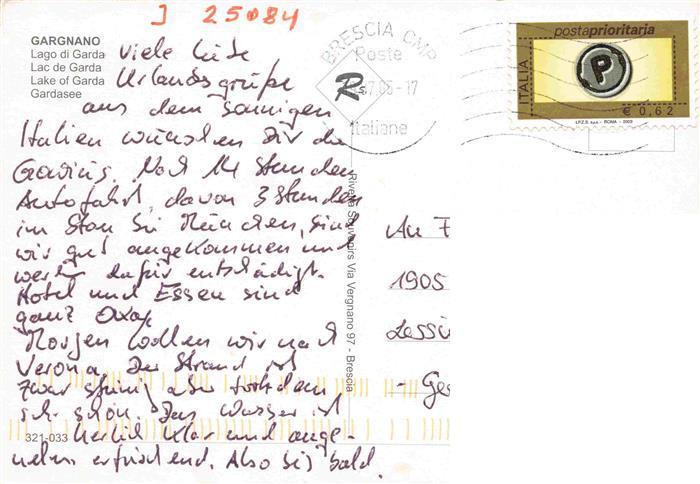 I 25084
GARGNANO
Lago di Garda
Lac de Garda
Lake of Garda
Gardasee
Viele liebe
Urlaubsgrüße
aus dem sonnigen
Italien wünschen Dir die
Nach 14 Stunden
Autofahrt, davon 3 Stunden
im Stau bei München, sind
wir gut angekommen und
werden dafür entschädigt.
Hotel und Essen sind
ganz okay
Morgen wollen wir nach
Verona. Der Strand ist
zwar steinig aber trotzdem
sehr schön. Das Wasser ist
herrlich klar und ange-
nehm erfrischend. Also bis bald.
321-033
Rivella Souvenirs Via Vergnano 97 - Brescia
BRESCIA CMP
Poste
.05-17
Italiane
postaprioritaria
P
ITALIA
€ 0,62
I.P.Z.S. S.p.A. - ROMA - 2003
An F
1905
Lessi
- Ge